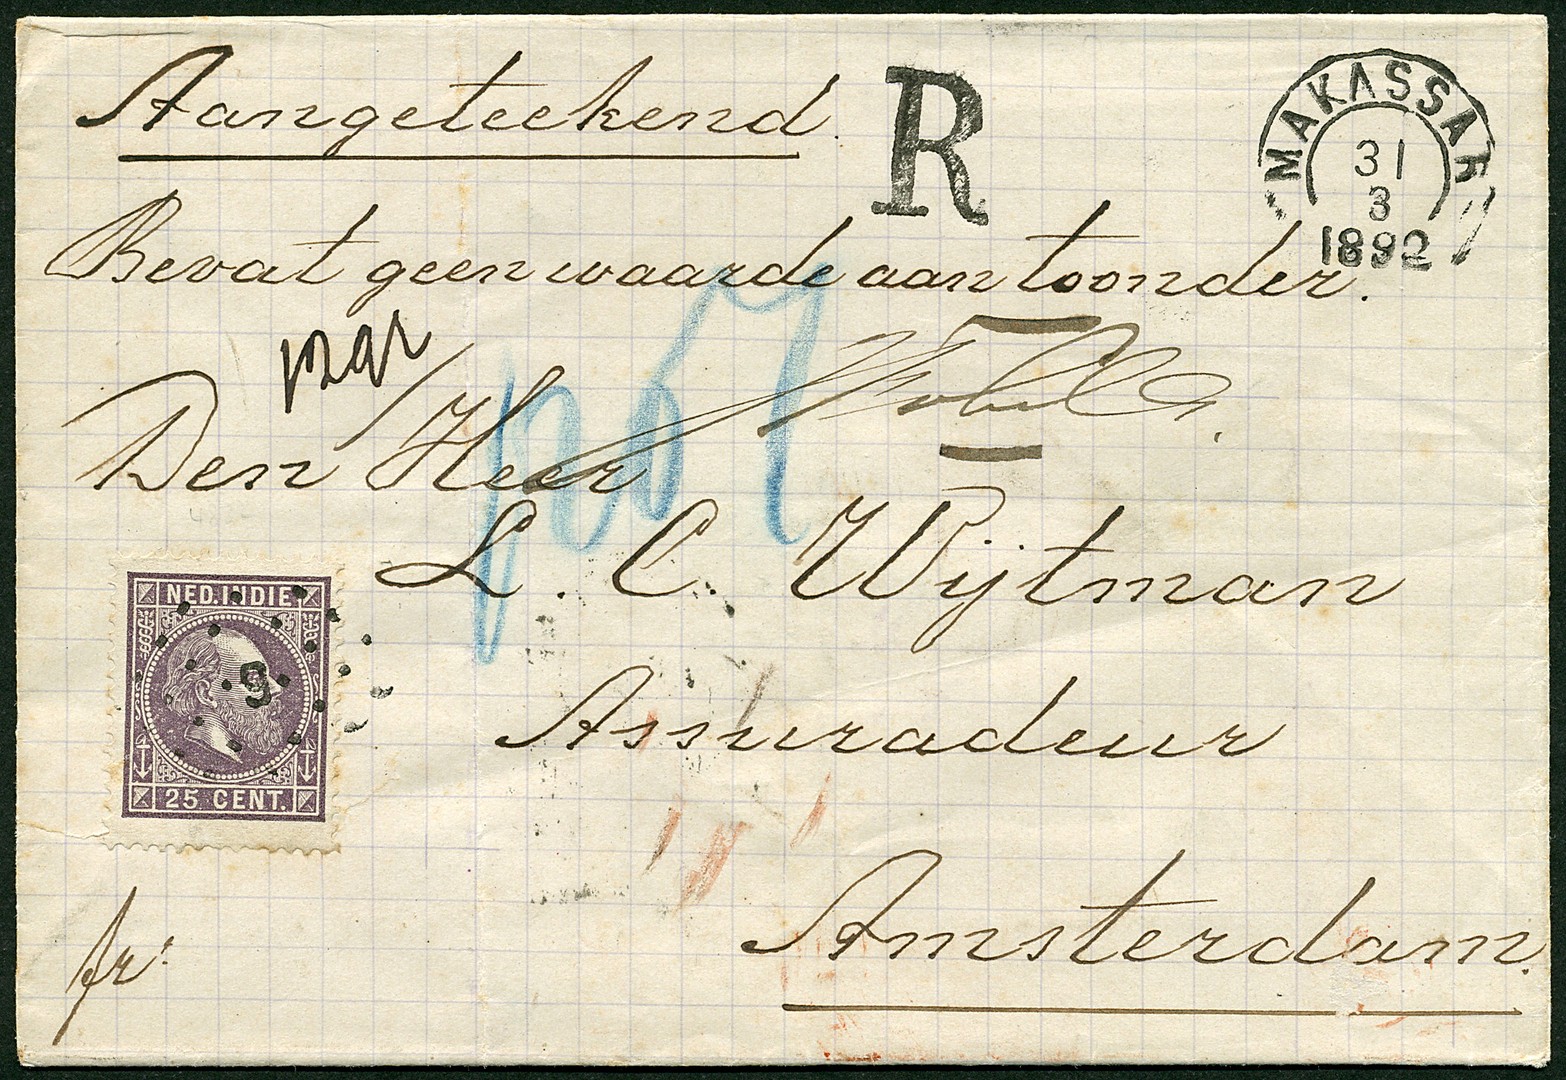 Aangeteekend.
R
MAKASSAR
31
3
1892
Bevat geen waarde aan toonder.
Den Heer
L. C. Wijtman
Assuradeur
Amsterdam.
NED. INDIE
9
25 CENT.
fr: